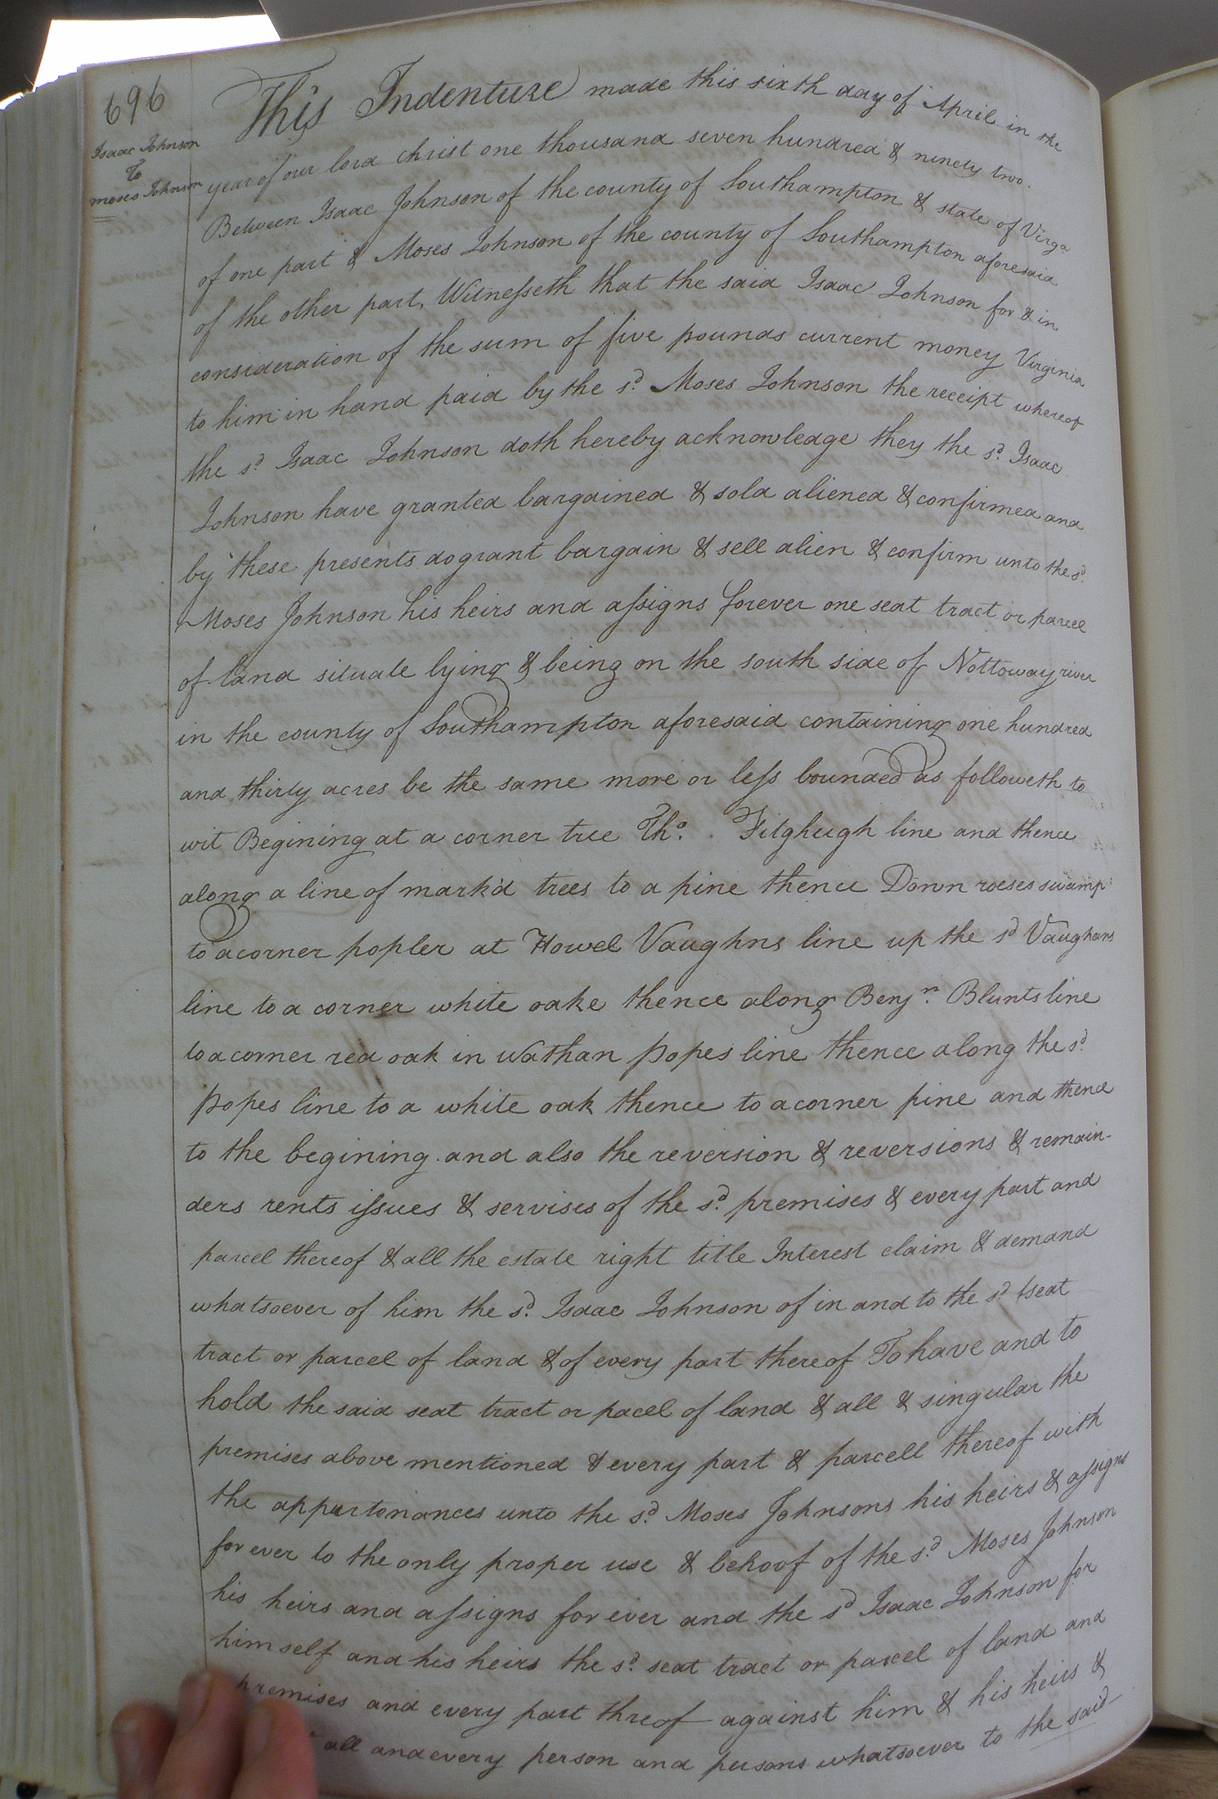 696
Isaac Johnson
To
Moses Johnson
This Indenture made this sixth day of April in the
year of our lord christ one thousand seven hundred & ninety two.
Between Isaac Johnson of the county of Southampton & state of Virga
of one part & Moses Johnson of the county of Southampton aforesaid
of the other part, Witnesseth that the said Isaac Johnson for & in
consideration of the sum of five pounds current money Virginia
to him in hand paid by the sd. Moses Johnson the receipt whereof
the sd. Isaac Johnson doth hereby acknowledge they the sd. Isaac
Johnson have granted bargained & sold aliened & confirmed and
by these presents do grant bargain & sell alien & confirm unto the sd.
Moses Johnson his heirs and assigns forever one seat tract or parcel
of land situate lying & being on the south side of Nottoway river
in the county of Southampton aforesaid containing one hundred
and thirty acres be the same more or less bounded as followeth to
wit Begining at a corner tree Tho. Fitzhugh line and thence
along a line of mark'd trees to a pine thence Down roeses swamp
to a corner popler at Howel Vaughns line up the sd Vaughans
line to a corner white oake thence along Benjn. Blunts line
to a corner red oak in Nathan Popes line thence along the sd.
Popes line to a white oak thence to a corner pine and thence
to the begining. and also the reversion & reversions & remain-
ders rents issues & servises of the sd. premises & every part and
parcel thereof & all the estate right title Interest claim & demand
whatsoever of him the sd. Isaac Johnson of in and to the sd seat
tract or parcel of land & of every part thereof To have and to
hold the said seat tract or pacel of land & all & singular the
premises above mentioned & every part & parcell thereof with
the appurtonances unto the sd. Moses Johnsons his heirs & assigns
for ever to the only proper use & behoof of the sd. Moses Johnson
his heirs and assigns for ever and the sd Isaac Johnson for
himself and his heirs the sd. seat tract or parcel of land and
premises and every part threof against him & his heirs &
all and every person and persons whatsoever to the said